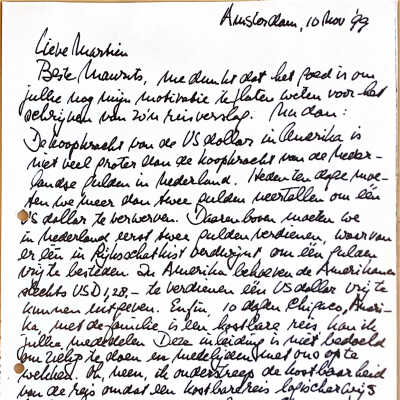 Amsterdam, 10 Nov '99
Lieve Martien
Beste Maurits, me dunkt dat het goed is om
jullie nog mijn motivatie te laten weten voor het
schrijven van zo'n reisverslag. Nu dan:
De koopkracht van de US dollar in Amerika is
niet veel groter dan de koopkracht van de Neder-
landse gulden in Nederland. Heden ten dage moe-
ten we meer dan twee gulden neertellen om één
US dollar te verwerven. Daarenboven moeten we
in Nederland eerst twee gulden verdienen, waarvan
er één in Rijksschatkist verdwijnt om één gulden
vrij te besteden. In Amerika behoeven de Amerikanen
slechts USD 1,28,- te verdienen één US dollar vrij te
kunnen uitgeven. Enfin, 10 dagen Chicago, Ameri-
ka, met de familie is een kostbare reis kan ik
jullie mededelen. Deze inleiding is niet bedoeld
om zielig te doen en medelijden met ons op te
wekken. Oh, neen, ik onderstreep de kostbaarheid
van de reis omdat een kostbare reis logischerwijs